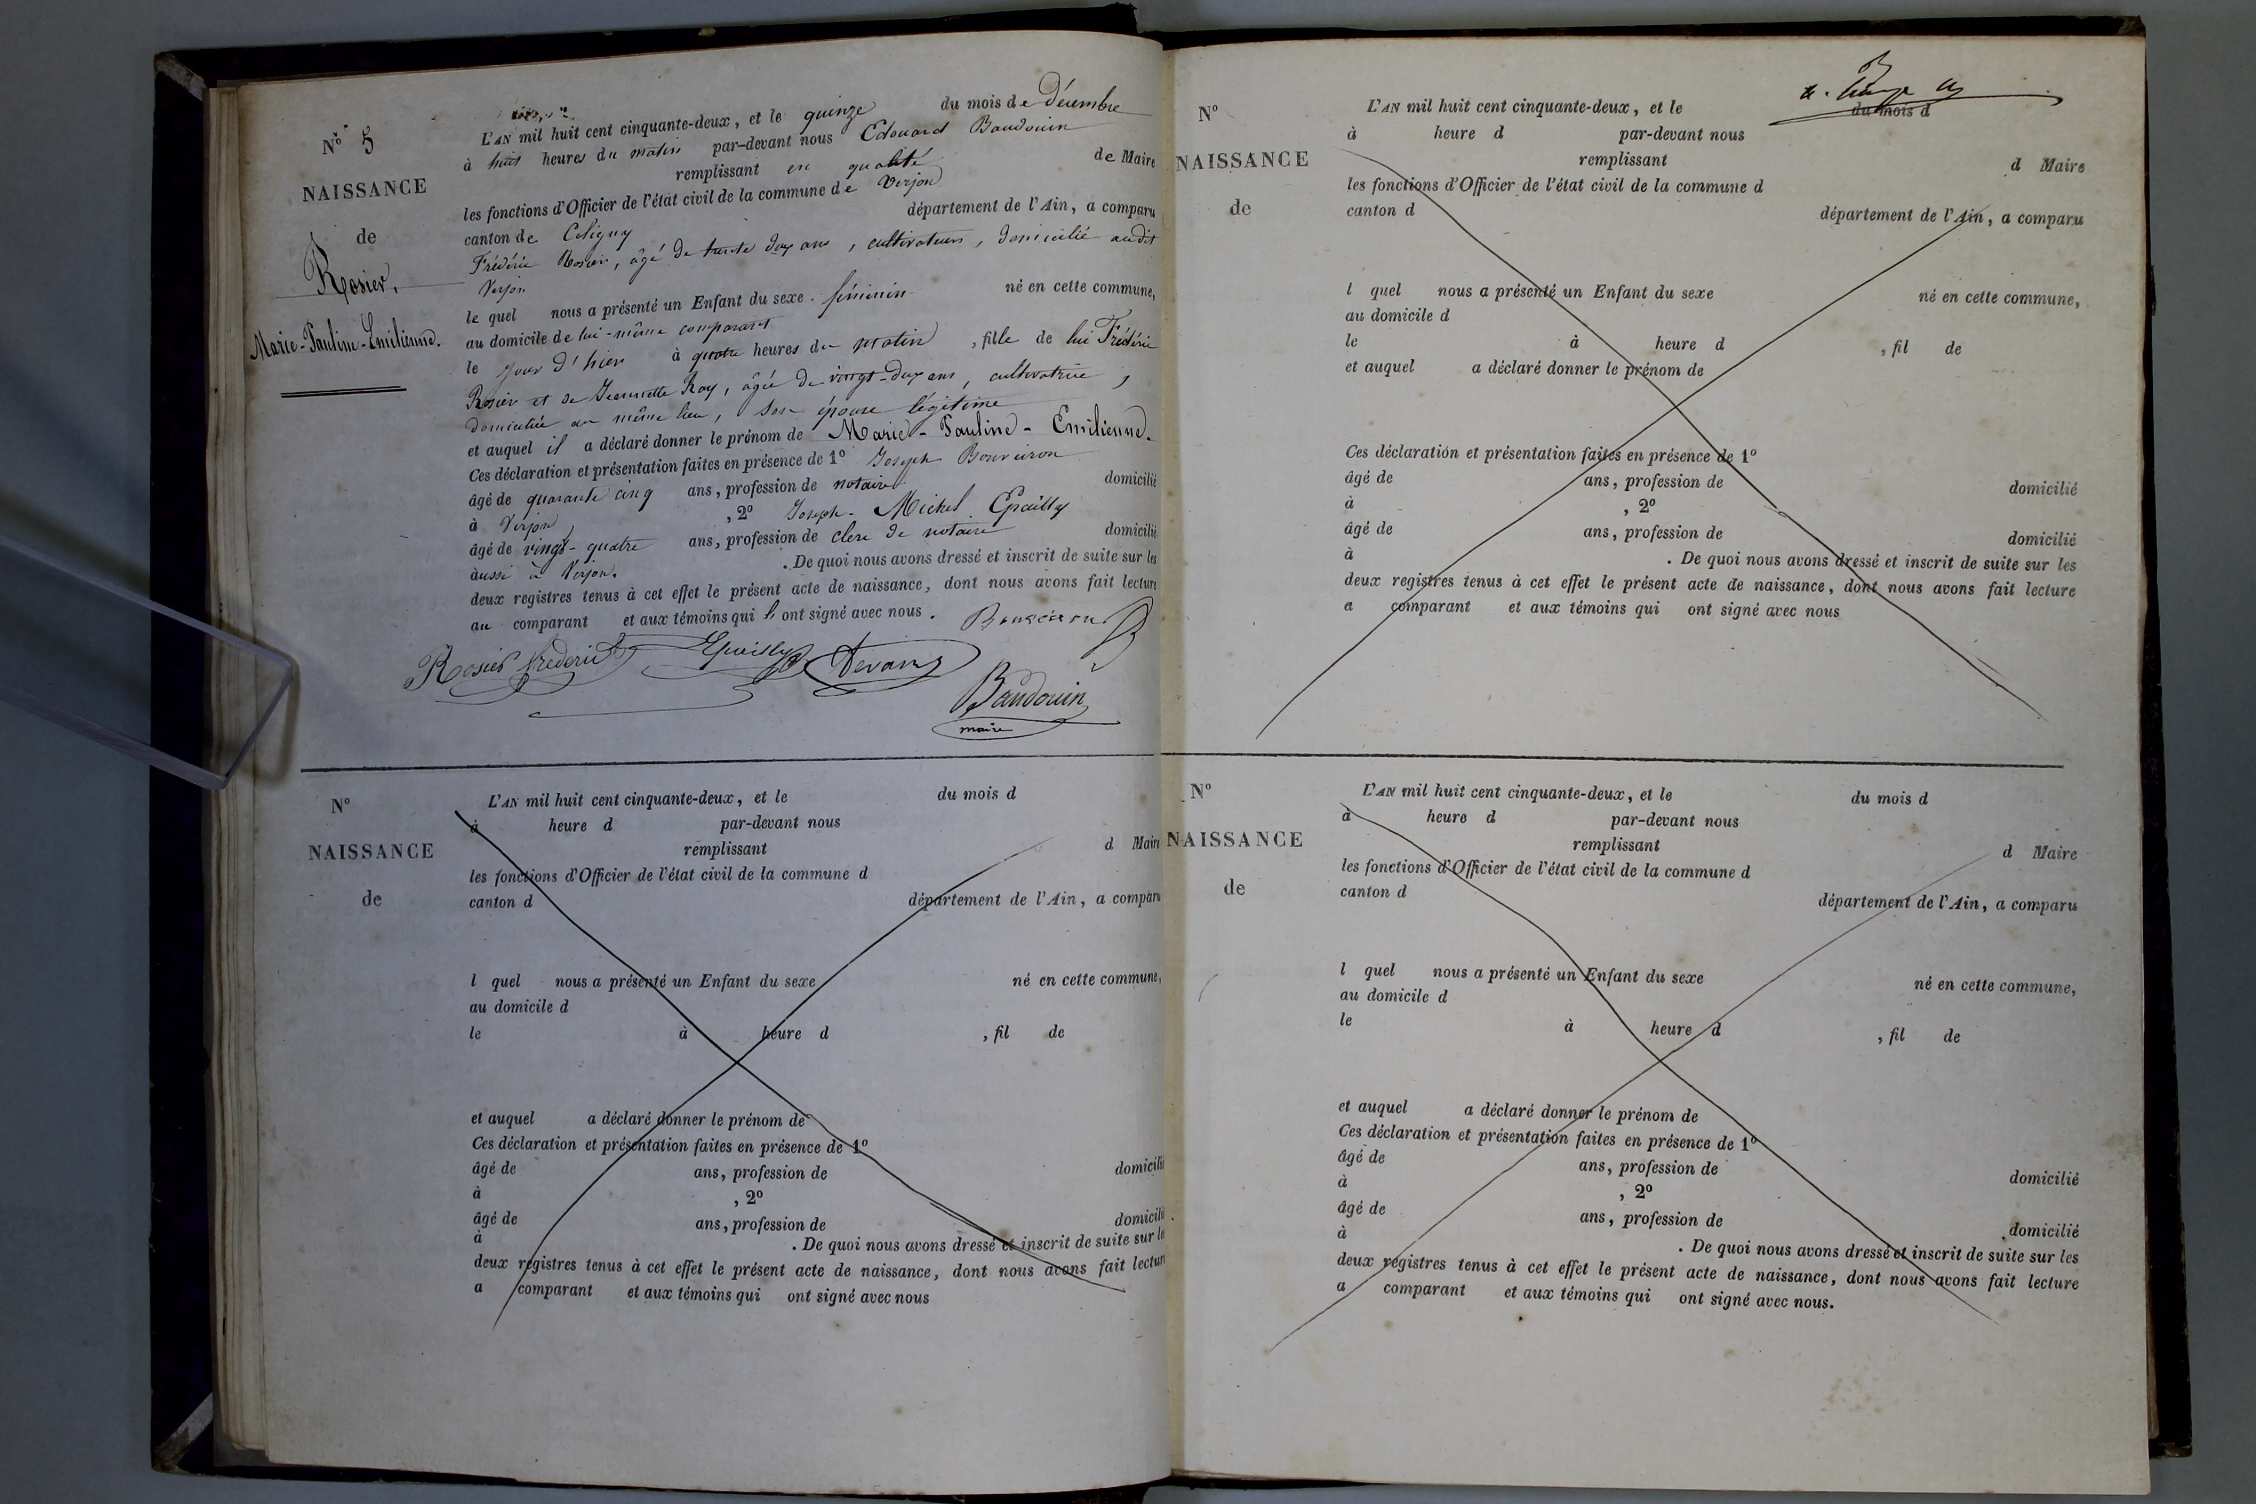 Nº 5
NAISSANCE
de
Rosier,
Marie-Pauline-Emilienne.
L'AN mil huit cent cinquante-deux, et le quinze du mois de Décembre
à huit heures du matin par-devant nous Edouard Baudouin
remplissant en qualité de Maire
les fonctions d'Officier de l'état civil de la commune de Verjon
canton de Coligny département de l'Ain, a comparu
Frédéric Rosier, âgé de trente deux ans, cultivateur, domicilié audit
Verjon
le quel nous a présenté un Enfant du sexe féminin né en cette commune,
au domicile de lui-même comparant
le jour d'hier à quatre heures du matin, fille de lui Frédéric
Rosier et de Jeannette Roy, âgée de vingt-deux ans, cultivatrice,
domiciliée au même lieu, son épouse légitime
et auquel il a déclaré donner le prénom de Marie-Pauline-Emilienne.
Ces déclaration et présentation faites en présence de 1º Joseph Bouveiron
âgé de quarante cinq ans, profession de notaire domicilié
à Verjon, 2º Joseph-Michel Epailly
âgé de vingt-quatre ans, profession de clerc de notaire domicilié
aussi à Verjon. De quoi nous avons dressé et inscrit de suite sur les
deux registres tenus à cet effet le présent acte de naissance, dont nous avons fait lecture
au comparant et aux témoins qui l'ont signé avec nous.
Rosier frederic Epailly Devarg Bouveiron
Baudouin
maire
Nº
NAISSANCE
de
L'AN mil huit cent cinquante-deux, et le du mois d
à heure d par-devant nous
remplissant d Maire
les fonctions d'Officier de l'état civil de la commune d
canton d département de l'Ain, a comparu
l quel nous a présenté un Enfant du sexe né en cette commune,
au domicile d
le à heure d , fil de
et auquel a déclaré donner le prénom de
Ces déclaration et présentation faites en présence de 1º
âgé de ans, profession de domicilié
à , 2º
âgé de ans, profession de domicilié
à . De quoi nous avons dressé et inscrit de suite sur les
deux registres tenus à cet effet le présent acte de naissance, dont nous avons fait lecture
a comparant et aux témoins qui ont signé avec nous
Nº
NAISSANCE
de
L'AN mil huit cent cinquante-deux, et le du mois d
à heure d par-devant nous
remplissant d Maire
les fonctions d'Officier de l'état civil de la commune d
canton d département de l'Ain, a comparu
l quel nous a présenté un Enfant du sexe né en cette commune,
au domicile d
le à heure d , fil de
et auquel a déclaré donner le prénom de
Ces déclaration et présentation faites en présence de 1º
âgé de ans, profession de domicilié
à , 2º
âgé de ans, profession de domicilié
à . De quoi nous avons dressé et inscrit de suite sur les
deux registres tenus à cet effet le présent acte de naissance, dont nous avons fait lecture
a comparant et aux témoins qui ont signé avec nous
Nº
NAISSANCE
de
L'AN mil huit cent cinquante-deux, et le du mois d
à heure d par-devant nous
remplissant d Maire
les fonctions d'Officier de l'état civil de la commune d
canton d département de l'Ain, a comparu
l quel nous a présenté un Enfant du sexe né en cette commune,
au domicile d
le à heure d , fil de
et auquel a déclaré donner le prénom de
Ces déclaration et présentation faites en présence de 1º
âgé de ans, profession de domicilié
à , 2º
âgé de ans, profession de domicilié
à . De quoi nous avons dressé et inscrit de suite sur les
deux registres tenus à cet effet le présent acte de naissance, dont nous avons fait lecture
a comparant et aux témoins qui ont signé avec nous.